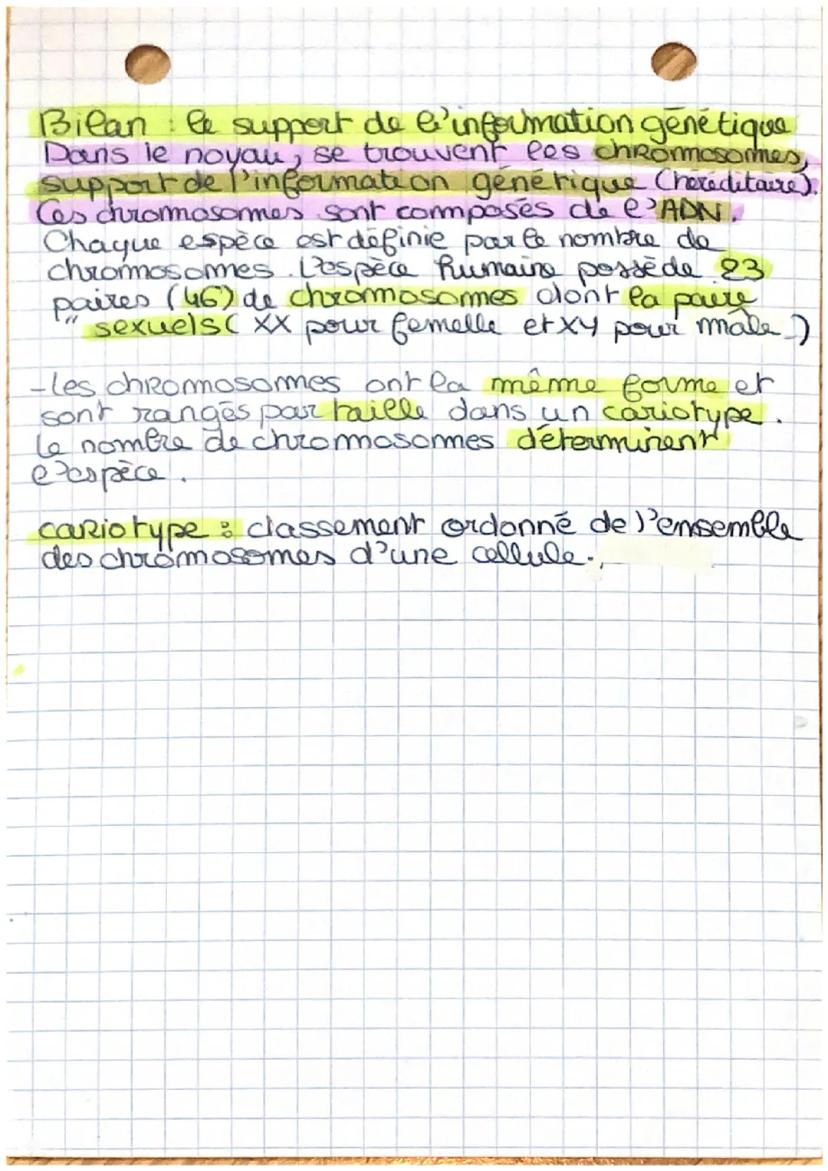 Bilan : le support de l'information génétique
Dans le noyau, se trouvent les chromosomes,
support de l'information génétique (héréditaire).
Ces chromosomes sont composés de l'ADN.
Chaque espèce est définie par le nombre de
chromosomes. L'espèce humaine possède 23
paires (46) de chromosomes dont la paire
" sexuels ( XX pour femelle et XY pour mâle )
- Les chromosomes ont la même forme et
sont rangés par taille dans un cariotype.
Le nombre de chromosomes déterminent
l'espèce.
cariotype : classement ordonné de l'ensemble
des chromosomes d'une cellule.